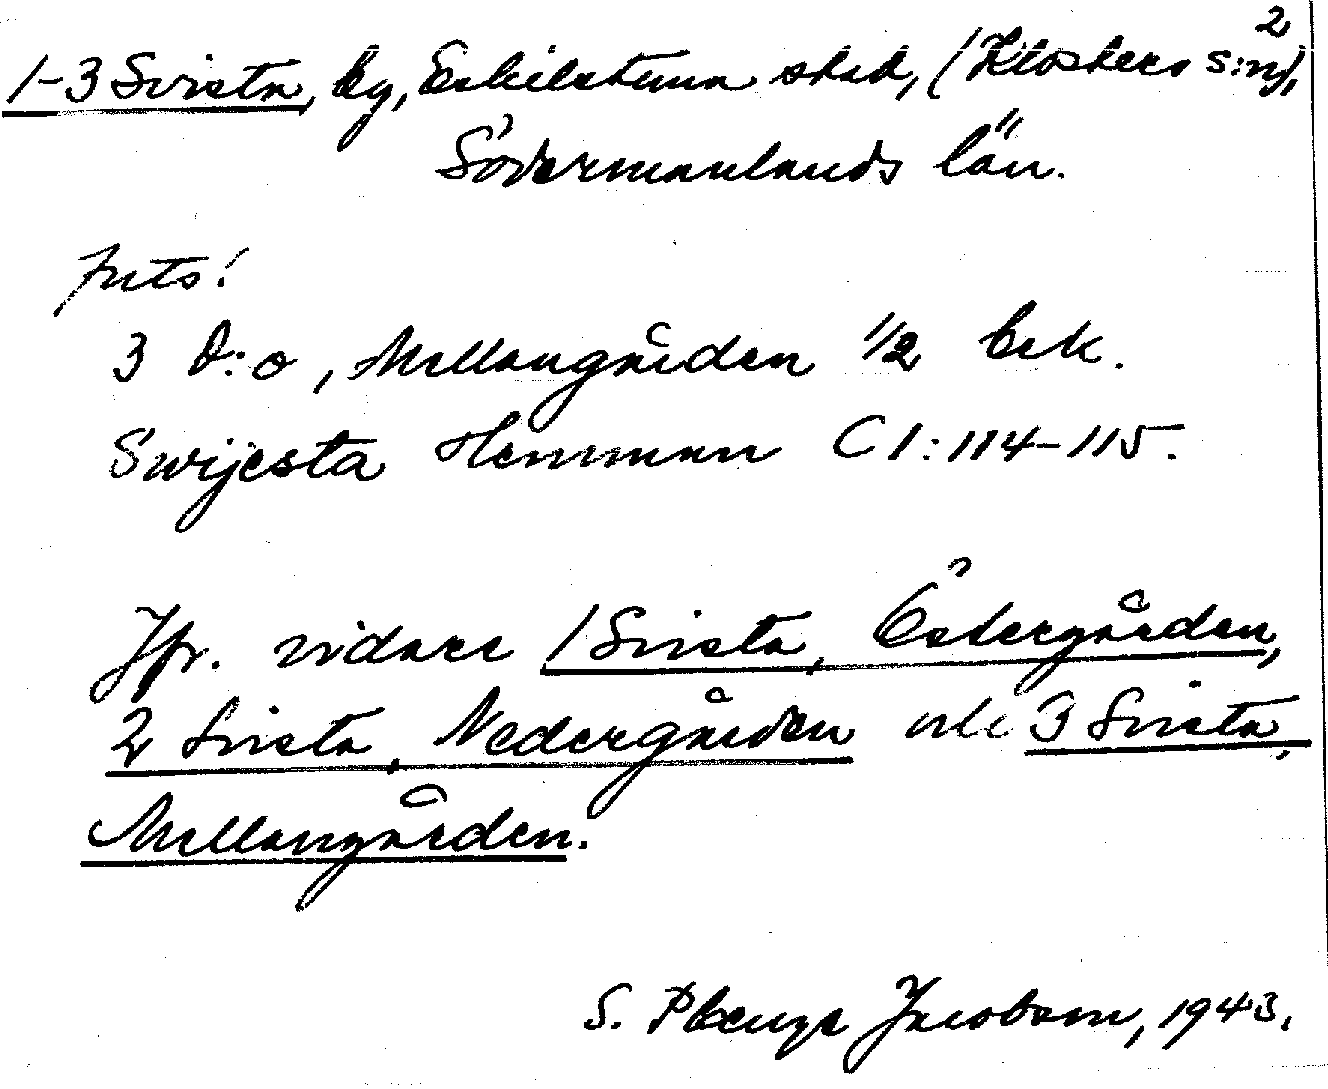 2
1-3 Svista, by, Eskilstuna stad, (Klosters s:n),
Södermanlands län.
forts!
3 D:o, Mellangården 1/2 bek.
Swijesta Hemman C1:114-115.
Jfr. vidare 1 Svista, Östergården,
2 Svista, Nedergården och 3 Svista,
Mellangården.
S. Jacobson, 1943.